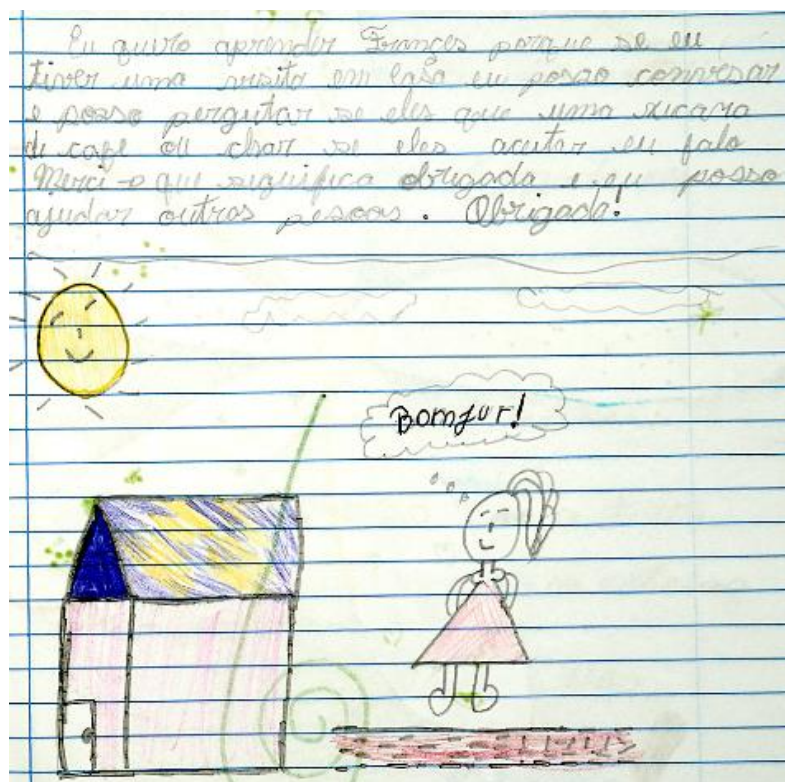 Eu quiro aprender Françes porque se eu
tiver uma visita em casa eu posao conversar
e posso pergutar se eles que uma xicara
de cafe ou char se eles aceitar eu falo
Merci-o que siguifica obrigada e eu posso
ajudar outras pesoas. Obrigada!
Bomjur!